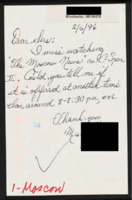 2/6/96
Dear Sirs:
I miss watching
"The Moscow News" on C-Span
II. Could you tell me if
it is offered at another time
than around 8-8:30 pm. our
Thank you
Mrs.
1-Moscow